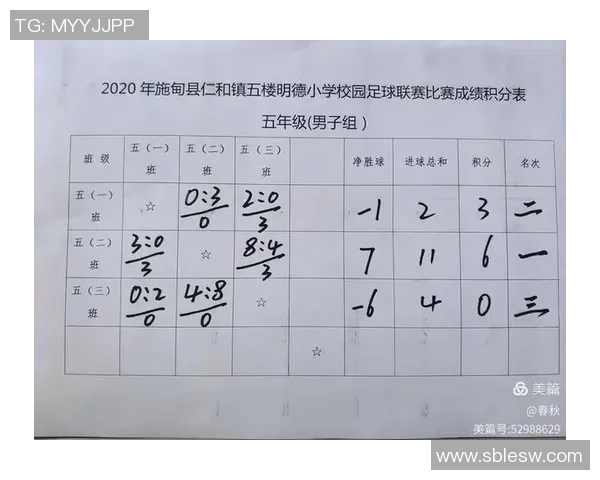 TG: MYYJJPP
2020 年施甸县仁和镇五楼明德小学校园足球联赛比赛成绩积分表
五年级(男子组 )
班 级 五（一）班 五（二）班 五（三）班 净胜球 进球总和 积分 名次
五（一）班 ☆ 0:3/0 2:0/3 -1 2 3 二
五（二）班 3:0/3 ☆ 8:4/3 7 11 6 一
五（三）班 0:2/0 4:8/0 ☆ -6 4 0 三
☆
美篇
@春秋
美篇号:52988629
www.sblesw.com